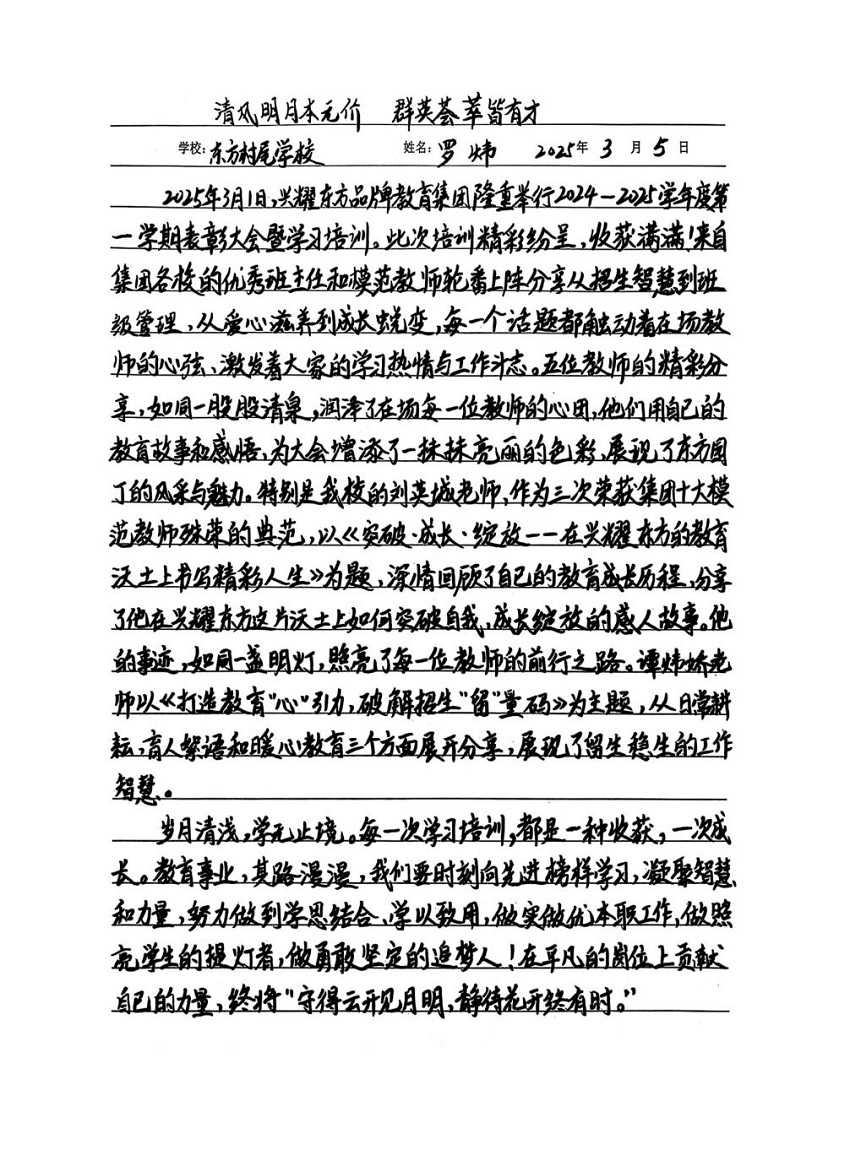 清风明月本无价 群英荟萃皆有才
学校:东方村尾学校 姓名:罗炜 2025年3月5日
2025年3月1日,兴耀东方品牌教育集团隆重举行2024—2025学年度第
一学期表彰大会暨学习培训。此次培训精彩纷呈,收获满满!来自
集团各校的优秀班主任和模范教师轮番上阵分享从招生智慧到班
级管理,从爱心滋养到成长蜕变,每一个话题都触动着在场教
师的心弦、激发着大家的学习热情与工作斗志。五位教师的精彩分
享,如同一股股清泉,润泽了在场每一位教师的心田,他们用自己的
教育故事和感悟,为大会增添了一抹抹亮丽的色彩,展现了东方园
丁的风采与魅力。特别是我校的刘英城老师,作为三次荣获集团十大模
范教师殊荣的典范,以《突破·成长·绽放——在兴耀东方的教育
沃土上书写精彩人生》为题,深情回顾了自己的教育成长历程,分享
了他在兴耀东方这片沃土上如何突破自我,成长绽放的感人故事。他
的事迹,如同一盏明灯,照亮了每一位教师的前行之路。谭炜娇老
师以《打造教育"心"引力,破解招生"留"量码》为主题,从日常耕
耘,育人絮语和暖心教育三个方面展开分享,展现了留生稳生的工作
智慧。
岁月清浅,学无止境。每一次学习培训,都是一种收获,一次成
长。教育事业,其路漫漫,我们要时刻向先进榜样学习,凝聚智慧
和力量,努力做到学思结合、学以致用,做实做优本职工作,做照
亮学生的提灯者,做勇敢坚定的追梦人!在平凡的岗位上贡献
自己的力量,终将"守得云开见月明,静待花开终有时。"